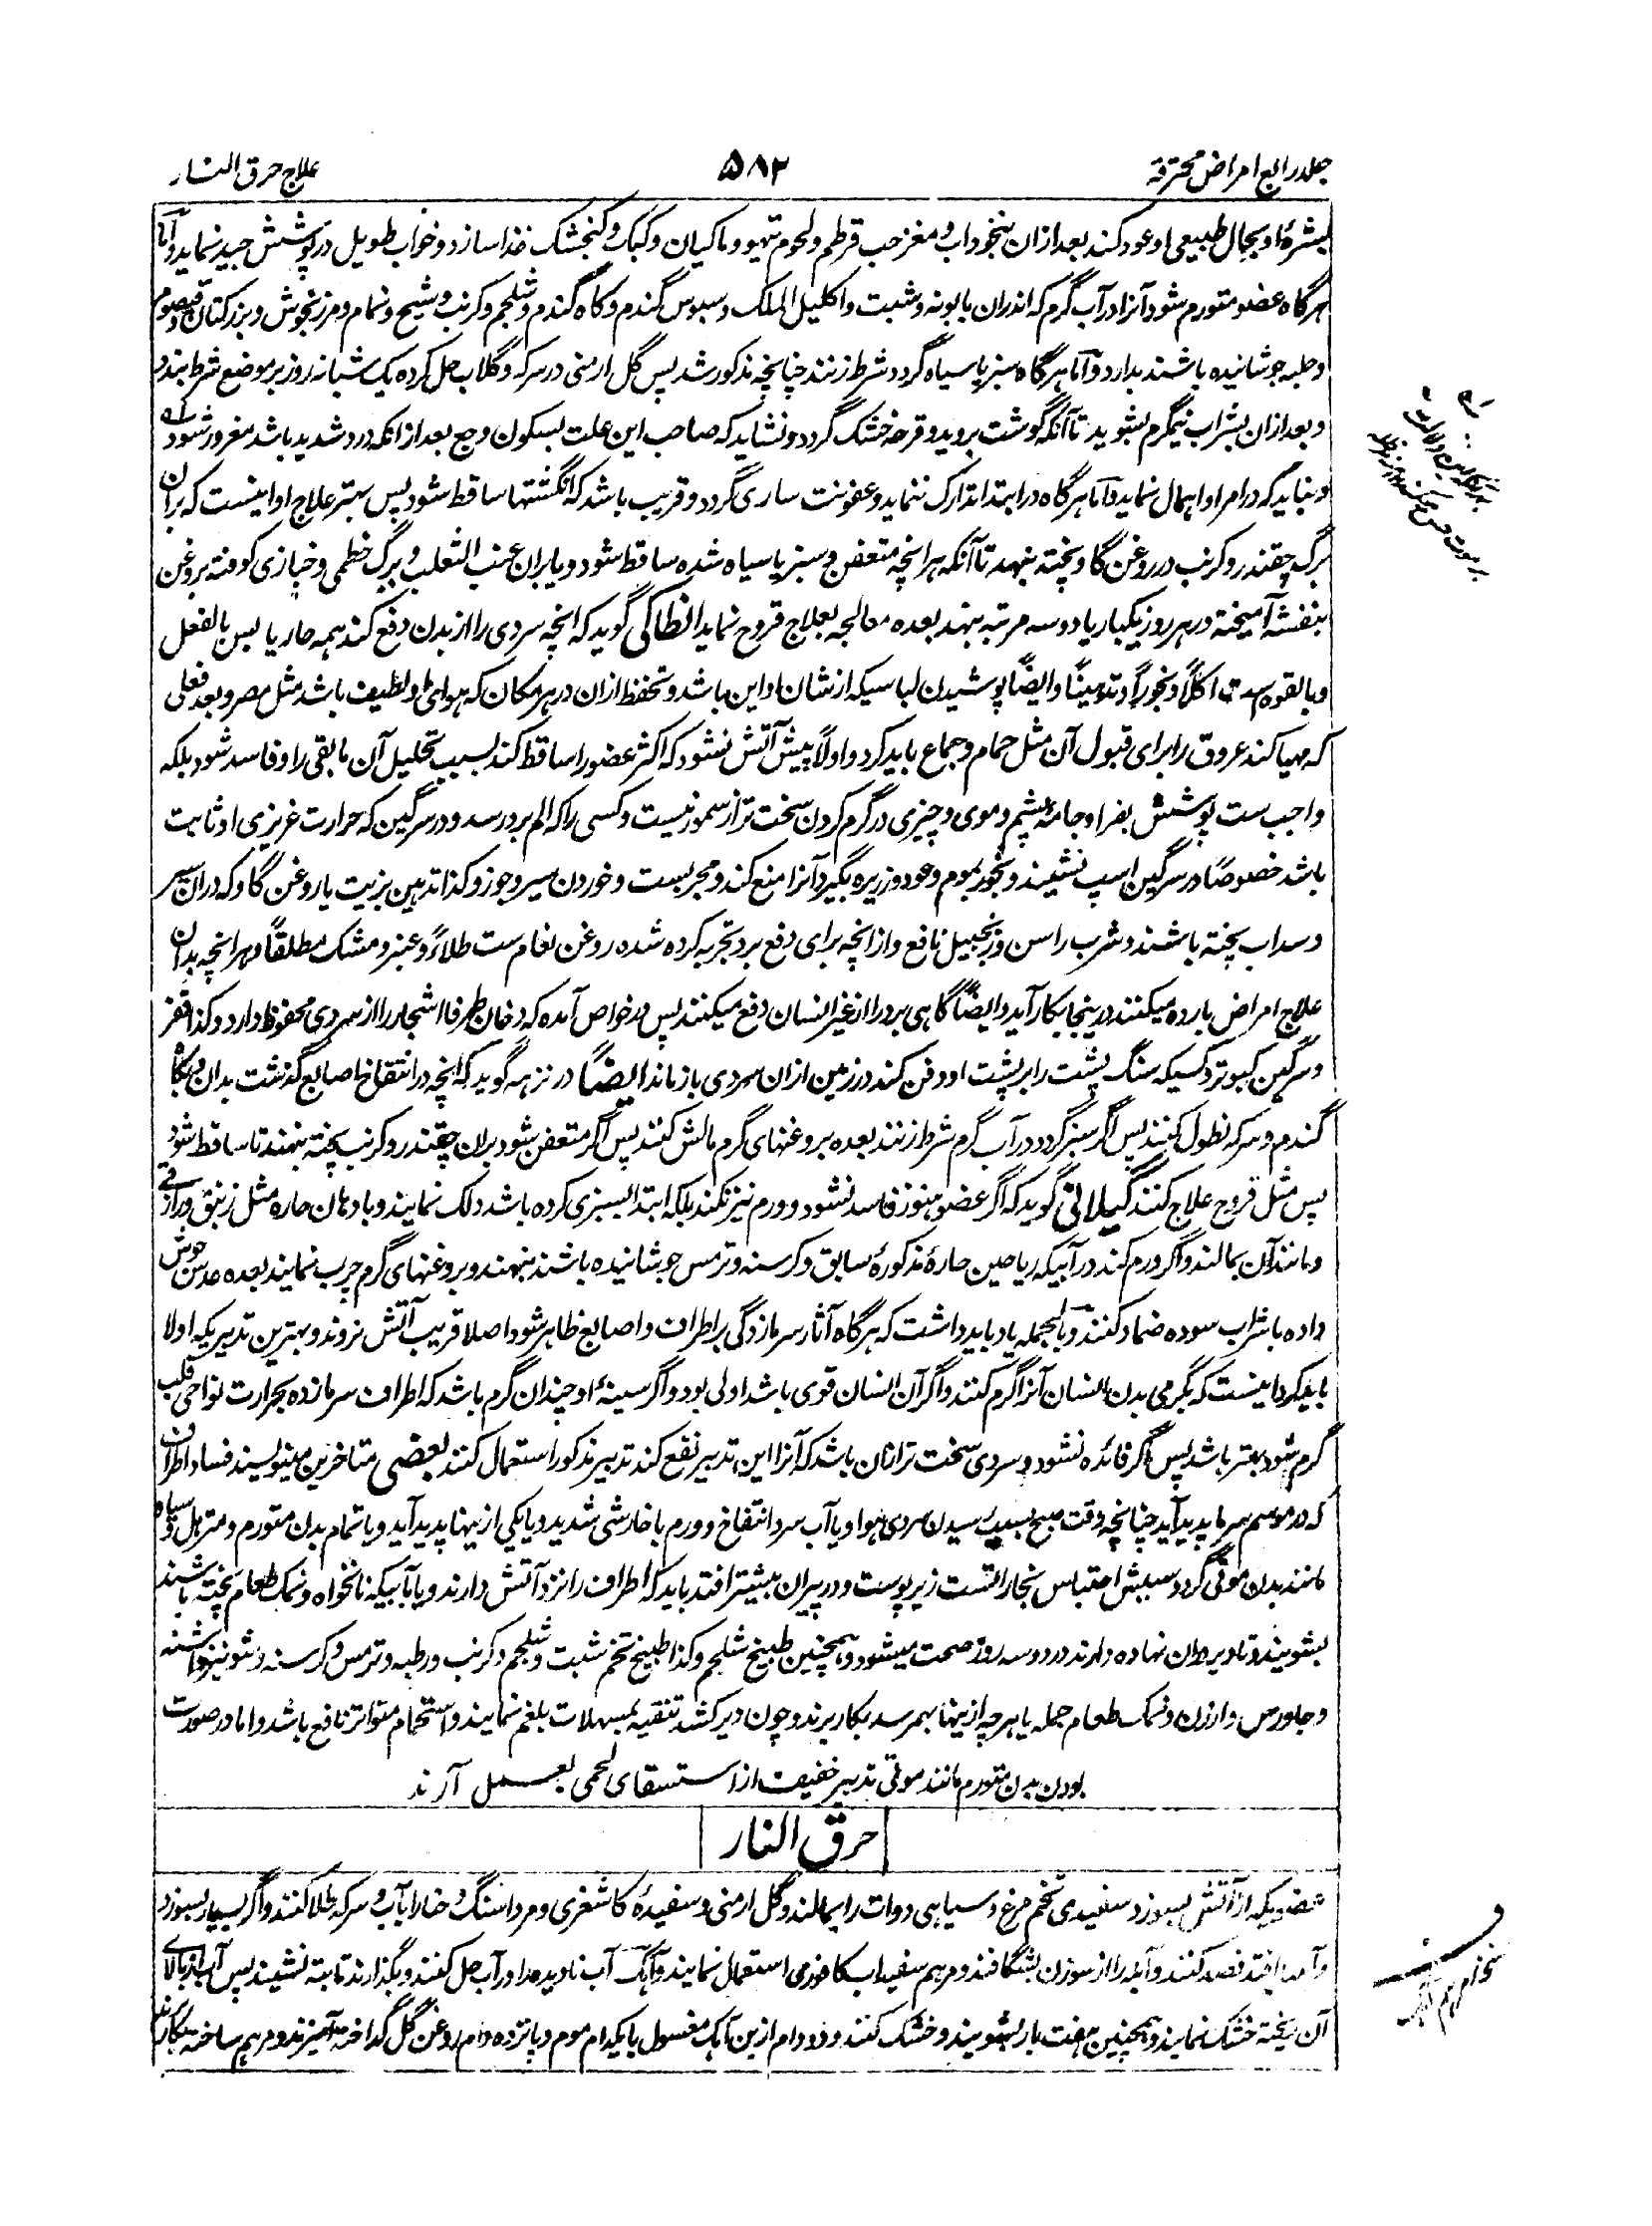 جلد رابع امراض محترقه
۵۸۲
علاج حرق النار
بشرهٔ او بحال طبیعی او عود کند بعد ازان بنخوداب و مغز حب قرطم و لحوم تیهو و ماکیان و کبک و کنجشک غذا سازد و خواب طویل در پوشش جید نماید و اما
هرگاه عضو متورم شود آنرا در آب گرم که اندران بابونه و شبت و اکلیل الملک و سبوس گندم و کاه گندم و شلجم و کرنب و شیح و نمام و مرزنجوش و بزر کتان و قیصوم
و حلبه جوشانیده باشند بدارد و اما هرگاه سبز یا سیاه گردد شرط زنند چنانچه مذکور شد پس گل ارمنی در سرکه و گلاب حل کرده یک شبانه روز بر موضع شرط بندد
و بعد ازان بشراب نیمگرم بشوید تا آنکه گوشت بروید و قرحه خشک گردد و نشاید که صاحب این علت بسکون وجع بعد از انکه درد شدید باشد مغرور شود
و نباید که در امر او اهمال نماید و اما هرگاه در ابتدا تدارک ننماید و عفونت ساری گردد و قریب باشد که انگشتها ساقط شود پس بهتر علاج او اینست که بران
برگ چقندر و کرنب در روغن گاو پخته بنهد تا آنکه هر انچه متعفن و سبز یا سیاه شده ساقط شود و یا بران عنب الثعلب و برگ خطمی و خبازی کوفته بروغن
بنفشه آمیخته در هر روز یکبار یا دو سه مرتبه بنهد بعده معالجه بعلاج قروح نماید انطاکی گوید که انچه سردی را از بدن دفع کند همه حار یابس بالفعل
و بالقوه ست اکلاً و بخوراً و تدهیناً و ایضاً پوشیدن لباسیکه از شان او این باشد و تحفظ ازان در هر مکان که هوای او لطیف باشد مثل مصر و بعد فعلی
که مهیا کند عروق را برای قبول آن مثل حمام و جماع باید کرد و اولاً پیش آتش نشود که اکثر عضو را ساقط کند بسبب تحلیل آن مابقی را و فاسد شود بلکه
واجب ست پوشش بفرا و جامهٔ پشم و موی و چیزی در گرم کردن سخت تر از سمور نیست و کسی را که الم برد رسد و در سرگین که حرارت غریزی او ثابت
باشد خصوصاً در سرگین اسپ نشیند و بخور بموم و عود و زیره بگیرد آنرا منع کند و مجربست و خوردن سیر و جوز و کذا تدهین بزیت یا روغن گاو که دران سیر
و سداب پخته باشند و شرب راسن و زنجبیل نافع و از انچه برای دفع برد تجربه کرده شده روغن نعام ست طلاءً و عنبر و مشک مطلقاً و هر انچه بدان
علاج امراض بارده میکنند در ینجا بکار آید و ایضاً گاهی برد را از غیر انسان دفع میکنند پس در خواص آمده که دخان طرفا اشجار را از سردی محفوظ دارد و کذا قفر
و سرگین کبوتر و کسیکه سنگ پشت را بر پشت او دفن کند در زمین ازان سردی باز ماند ایضاً در نزهه گوید که انچه در انتفاخ اصابع گذشت بدان و بکاه
گندم و سرکه نطول کنند پس اگر سبز گردد در آب گرم شرط زنند بعده بروغنهای گرم مالش کنند پس اگر متعفن شود بران چقندر و کرنب پخته بنهند تا ساقط شود
پس مثل قروح علاج کنند گیلانی گوید که اگر عضو هنوز فاسد نشود و ورم نیز نکند بلکه ابتدا بسبزی کرده باشد دلک نمایند و بادهان حاره مثل زنبق و رازقی
و مانند آن بمالند و اگر ورم کند در آبیکه ریاحین حارهٔ مذکورهٔ سابق و کرسنه و ترمس جوشانیده باشند بنهند و بروغنهای گرم چرب نمایند بعده عدس جوش
داده با شراب سوده ضماد کنند و بالجمله یاد باید داشت که هرگاه آثار سرمازدگی بر اطراف و اصابع ظاهر شود اصلا قریب آتش نروند و بهترین تدبیریکه اولا
باید کرد اینست که بگرمی بدن انسان آنرا گرم کنند و اگر آن انسان قوی باشد اولی بود و اگر سینهٔ او چندان گرم باشد که اطراف سرمازده بحرارت نواحی قلب
گرم شود بهتر باشد پس اگر فائده نشود و سردی سخت تر ازان باشد که آنرا این تدبیر نفع کند تدبیر مذکور استعمال کنند بعضی متاخرین مینویسند فساد اطراف
که در موسم سرما پدید آید چنانچه وقت صبح بسبب رسیدن سردی هوا و یا آب سرد انتفاخ و ورم با خارش شدید و یا یکی ازینها پدید آید و یا تمام بدن متورم و مترهل و سیاه
مانند بدن موتی گردد سببش احتباس بخارا تست زیر پوست و در پیران بیشتر افتد باید که اطراف را نزد آتش دارند و یا بآبیکه نانخواه و نمک طعام پخته باشند
بشویند و تا دیر دران نهاده دارند در دو سه روز صحت میشود و همچنین طبیخ شلجم و کذا طبیخ تخم شبت و شلجم و کرنب و رطبه و ترمس و کرسنه و شونیز و اشنه
و جاورس و ارزن و نمک طعام جمله یا هرچه ازینها بهمرسد بکار برند و چون دیر کشد تنقیه بمسهلات بلغم نمایند و استحمام متواتر نافع باشد و اما در صورت
بودن بدن متورم مانند موتی تدبیر خفیف از استسقای لحمی بعمل آرند
حرق النار
عضویکه از آتش بسوزد سفیدی تخم مرغ و سیاهی دوات را بمالند و گل ارمنی و سفیدهٔ کاشغری و مرداسنگ و حنا را بآب و سرکه طلا کنند و اگر بسیار بسوزد
و آبله افتد فصد کنند و آبله را از سوزن بشگافند و مرهم سفیداب کافوری استعمال نمایند و آهک آب نادیده را در آب حل کنند و بگذارند تا بته نشیند پس آب از بالای
آن ریخته خشک نمایند و همچنین هفت بار بشویند و خشک کنند و دو دام ازین آهک مغسول با یکدام موم و پانزده دام روغن گل گداخته آمیزند و مرهم ساخته بکار برند